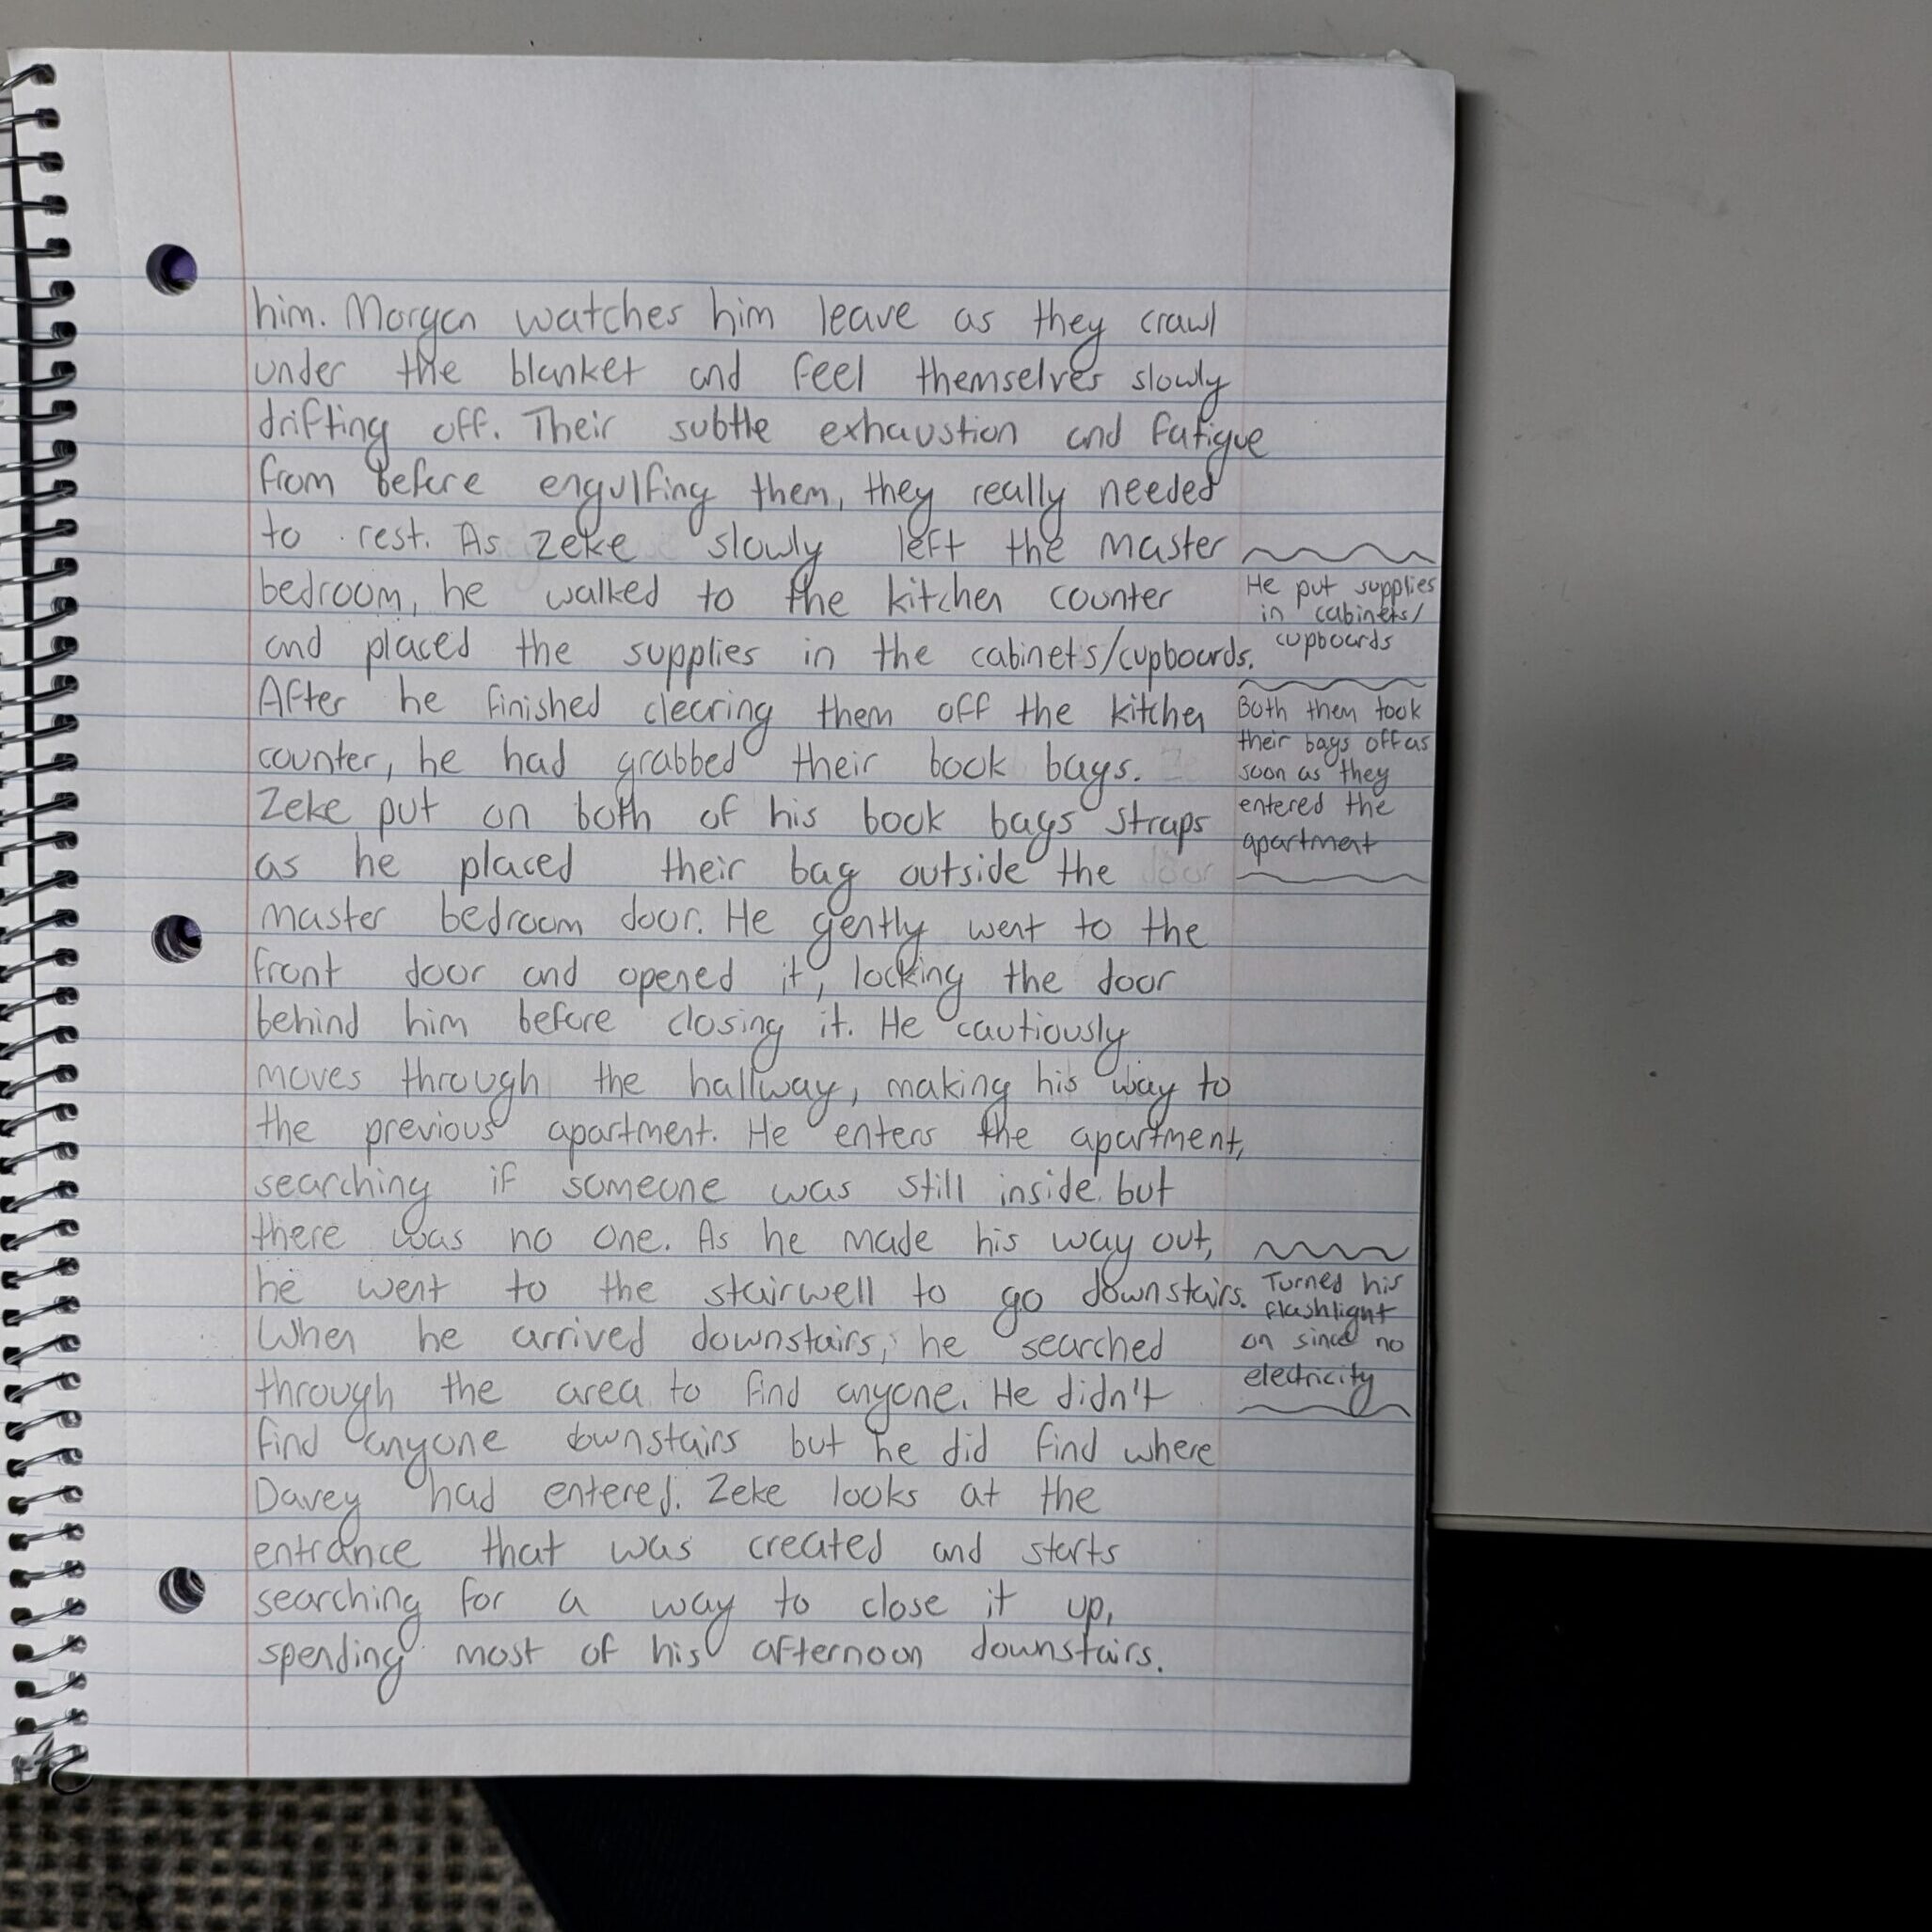 him. Morgan watches him leave as they crawl
under the blanket and feel themselves slowly
drifting off. Their subtle exhaustion and fatigue
from before engulfing them, they really needed
to rest. As Zeke slowly left the master
bedroom, he walked to the kitchen counter
and placed the supplies in the cabinets/cupboards.
After he finished clearing them off the kitchen
counter, he had grabbed their book bags.
Zeke put on both of his book bags straps
as he placed their bag outside the
master bedroom door. He gently went to the
front door and opened it, locking the door
behind him before closing it. He cautiously
moves through the hallway, making his way to
the previous apartment. He enters the apartment,
searching if someone was still inside but
there was no one. As he made his way out,
he went to the stairwell to go downstairs.
When he arrived downstairs, he searched
through the area to find anyone. He didn't
find anyone downstairs but he did find where
Davey had entered. Zeke looks at the
entrance that was created and starts
searching for a way to close it up,
spending most of his afternoon downstairs.
He put supplies
in cabinets/
cupboards
Both them took
their bags off as
soon as they
entered the
apartment
Turned his
flashlight
on since no
electricity